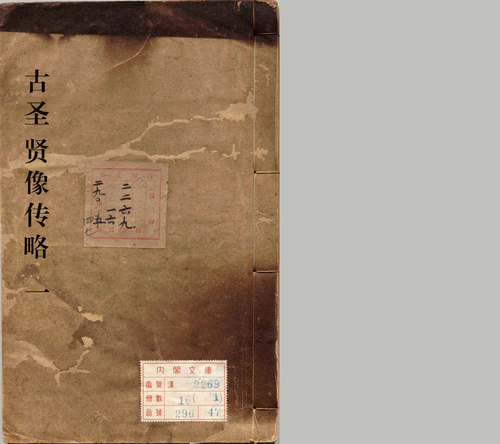 古圣贤像传略 一
二二六九
一六
内閣文庫
番號 漢 2269
冊數 16 ( 1)
函號 290 47